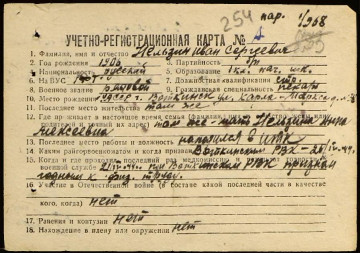 254 пар. 1/968
УЧЕТНО-РЕГИСТРАЦИОННАЯ КАРТА №
1. Фамилия, имя и отчество Нельзин Иван Сергеевич
2. Год рождения 1906 3. Партийность б/п
4. Национальность русский 5. Образование 1 кл. нач. шк.
6. На ВУС 7. Должностная квалификация стр.
8. Военное звание рядовой 9. Гражданская специальность пекарь
10. Место рождения Воткинск ул. Карла-Маркса
11. Последнее место жительства там же
12. Где проживает в настоящее время семья
там же - мать Нельзина Анна
Алексеевна
13. Последнее место работы и должность находился в ИТК
14. Каким райвоенкоматом и когда призван Воткинским РВК - 44г.
15. Когда и где проходил последний медосмотр
военной службе 44г. при Воткинском РВК признан
годным к физ. труду.
16. Участие в Отечественной войне (в составе какой последней части в качестве
кого, когда) нет
17. Ранения и контузии нет
18. Нахождение в плену или окружении нет